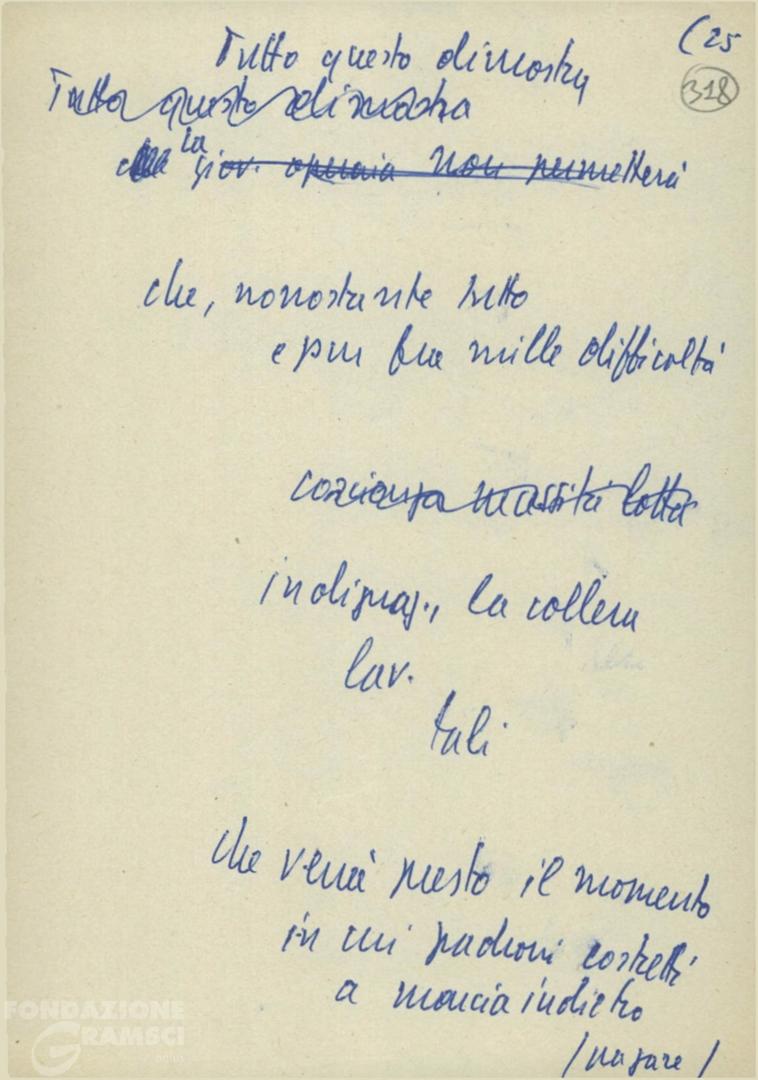 (25
318
Tutto questo dimostra
Tutto questo dimostra
che la giov. operaia non permetterà
che, nonostante tutto
e pur fra mille difficoltà
coscienza unità lotta
indignaz., la collera
lav.
tali
che verrà presto il momento
in cui padroni costretti
a marcia indietro
/ pagare /
FONDAZIONE
GRAMSCI